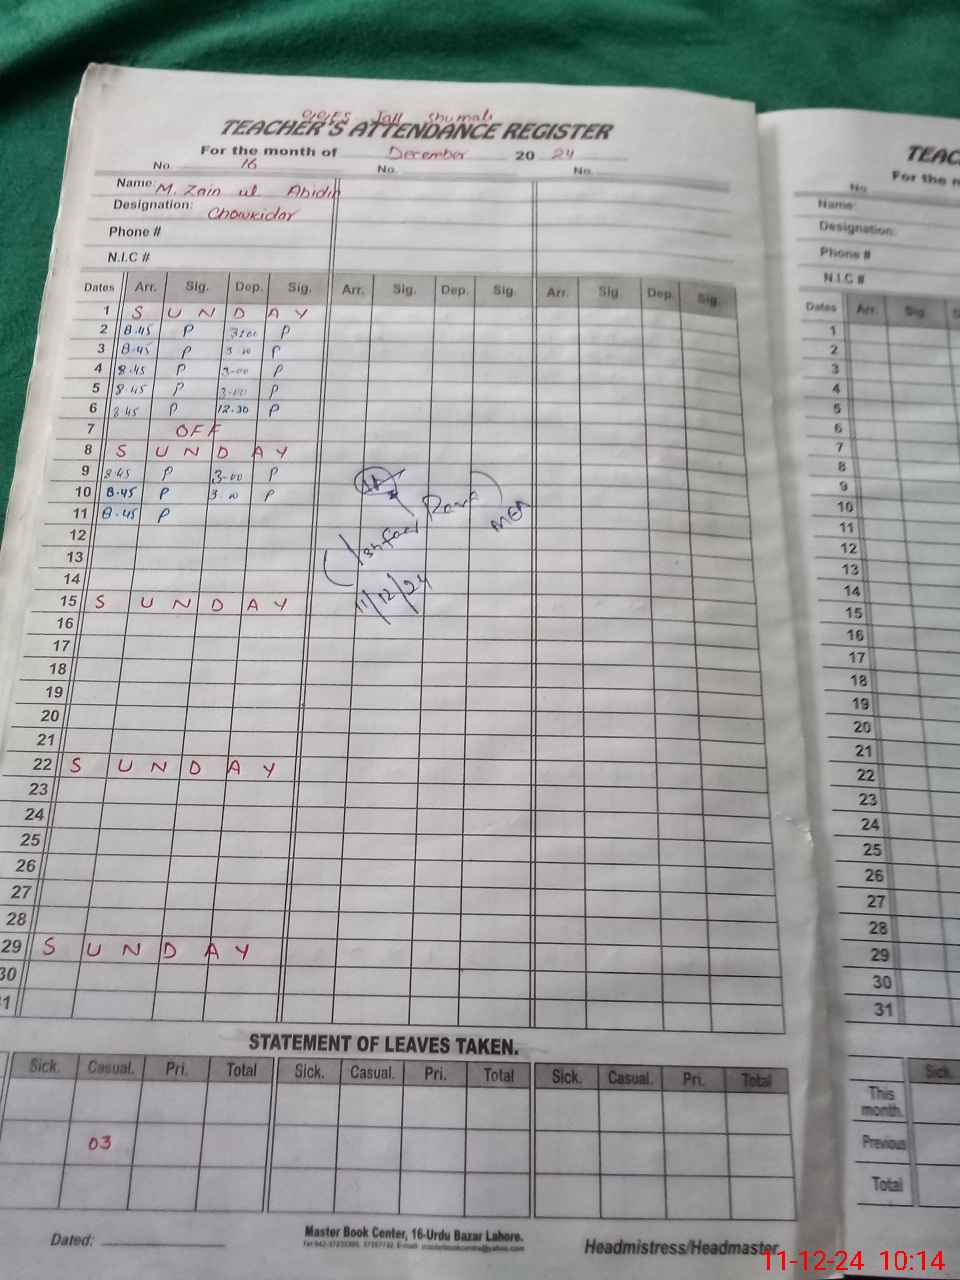 Jall Shumali
TEACHER'S ATTENDANCE REGISTER
For the month of December 20 24
No. 16 No. No.
Name: M. Zain ul Abidin
Designation: Chowkidar
Phone #
N.I.C #
Dates Arr. Sig. Dep. Sig. Arr. Sig. Dep. Sig. Arr. Sig. Dep. Sig.
1 S U N D A Y
2 8.45 P 3:00 P
3 8.45 P 3.00 P
4 8.45 P 3.00 P
5 8.45 P 3.00 P
6 8.45 P 12.30 P
7 OFF
8 S U N D A Y
9 8.45 P 3.00 P
10 8.45 P 3.00 P
11 8.45 P
12
13
14
15 S U N D A Y
16
17
18
19
20
21
22 S U N D A Y
23
24
25
26
27
28
29 S U N D A Y
30
31
MEA
11/12/24
STATEMENT OF LEAVES TAKEN.
Sick. Casual. Pri. Total Sick. Casual. Pri. Total Sick. Casual. Pri. Total
03
Dated:
Master Book Center, 16-Urdu Bazar Lahore.
Headmistress/Headmaster
TEAC
For the m
No.
Name:
Designation:
Phone #
N.I.C #
Dates Arr. Sig.
1
2
3
4
5
6
7
8
9
10
11
12
13
14
15
16
17
18
19
20
21
22
23
24
25
26
27
28
29
30
31
Sick.
This
month.
Previous
Total
11-12-24 10:14